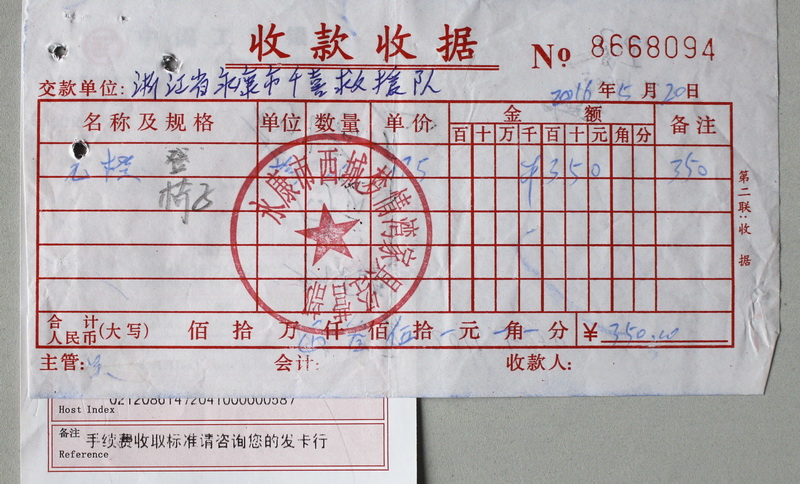 收款收据
No 8668094
交款单位: 浙江省永康市千喜救援队
2016年5月20日
名称及规格 单位 数量 单价 金额 备注
百十万千百十元角分
登 125 ¥350 350
椅子
永康市西城
营部
第二联:收据
合计人民币(大写) 佰 拾 万 仟 叁 佰 伍 拾 元 角 分 ¥ 350.00
主管: 会计: 收款人:
02120861472041000000587
Host Index
备注 手续费收取标准请咨询您的发卡行
Reference